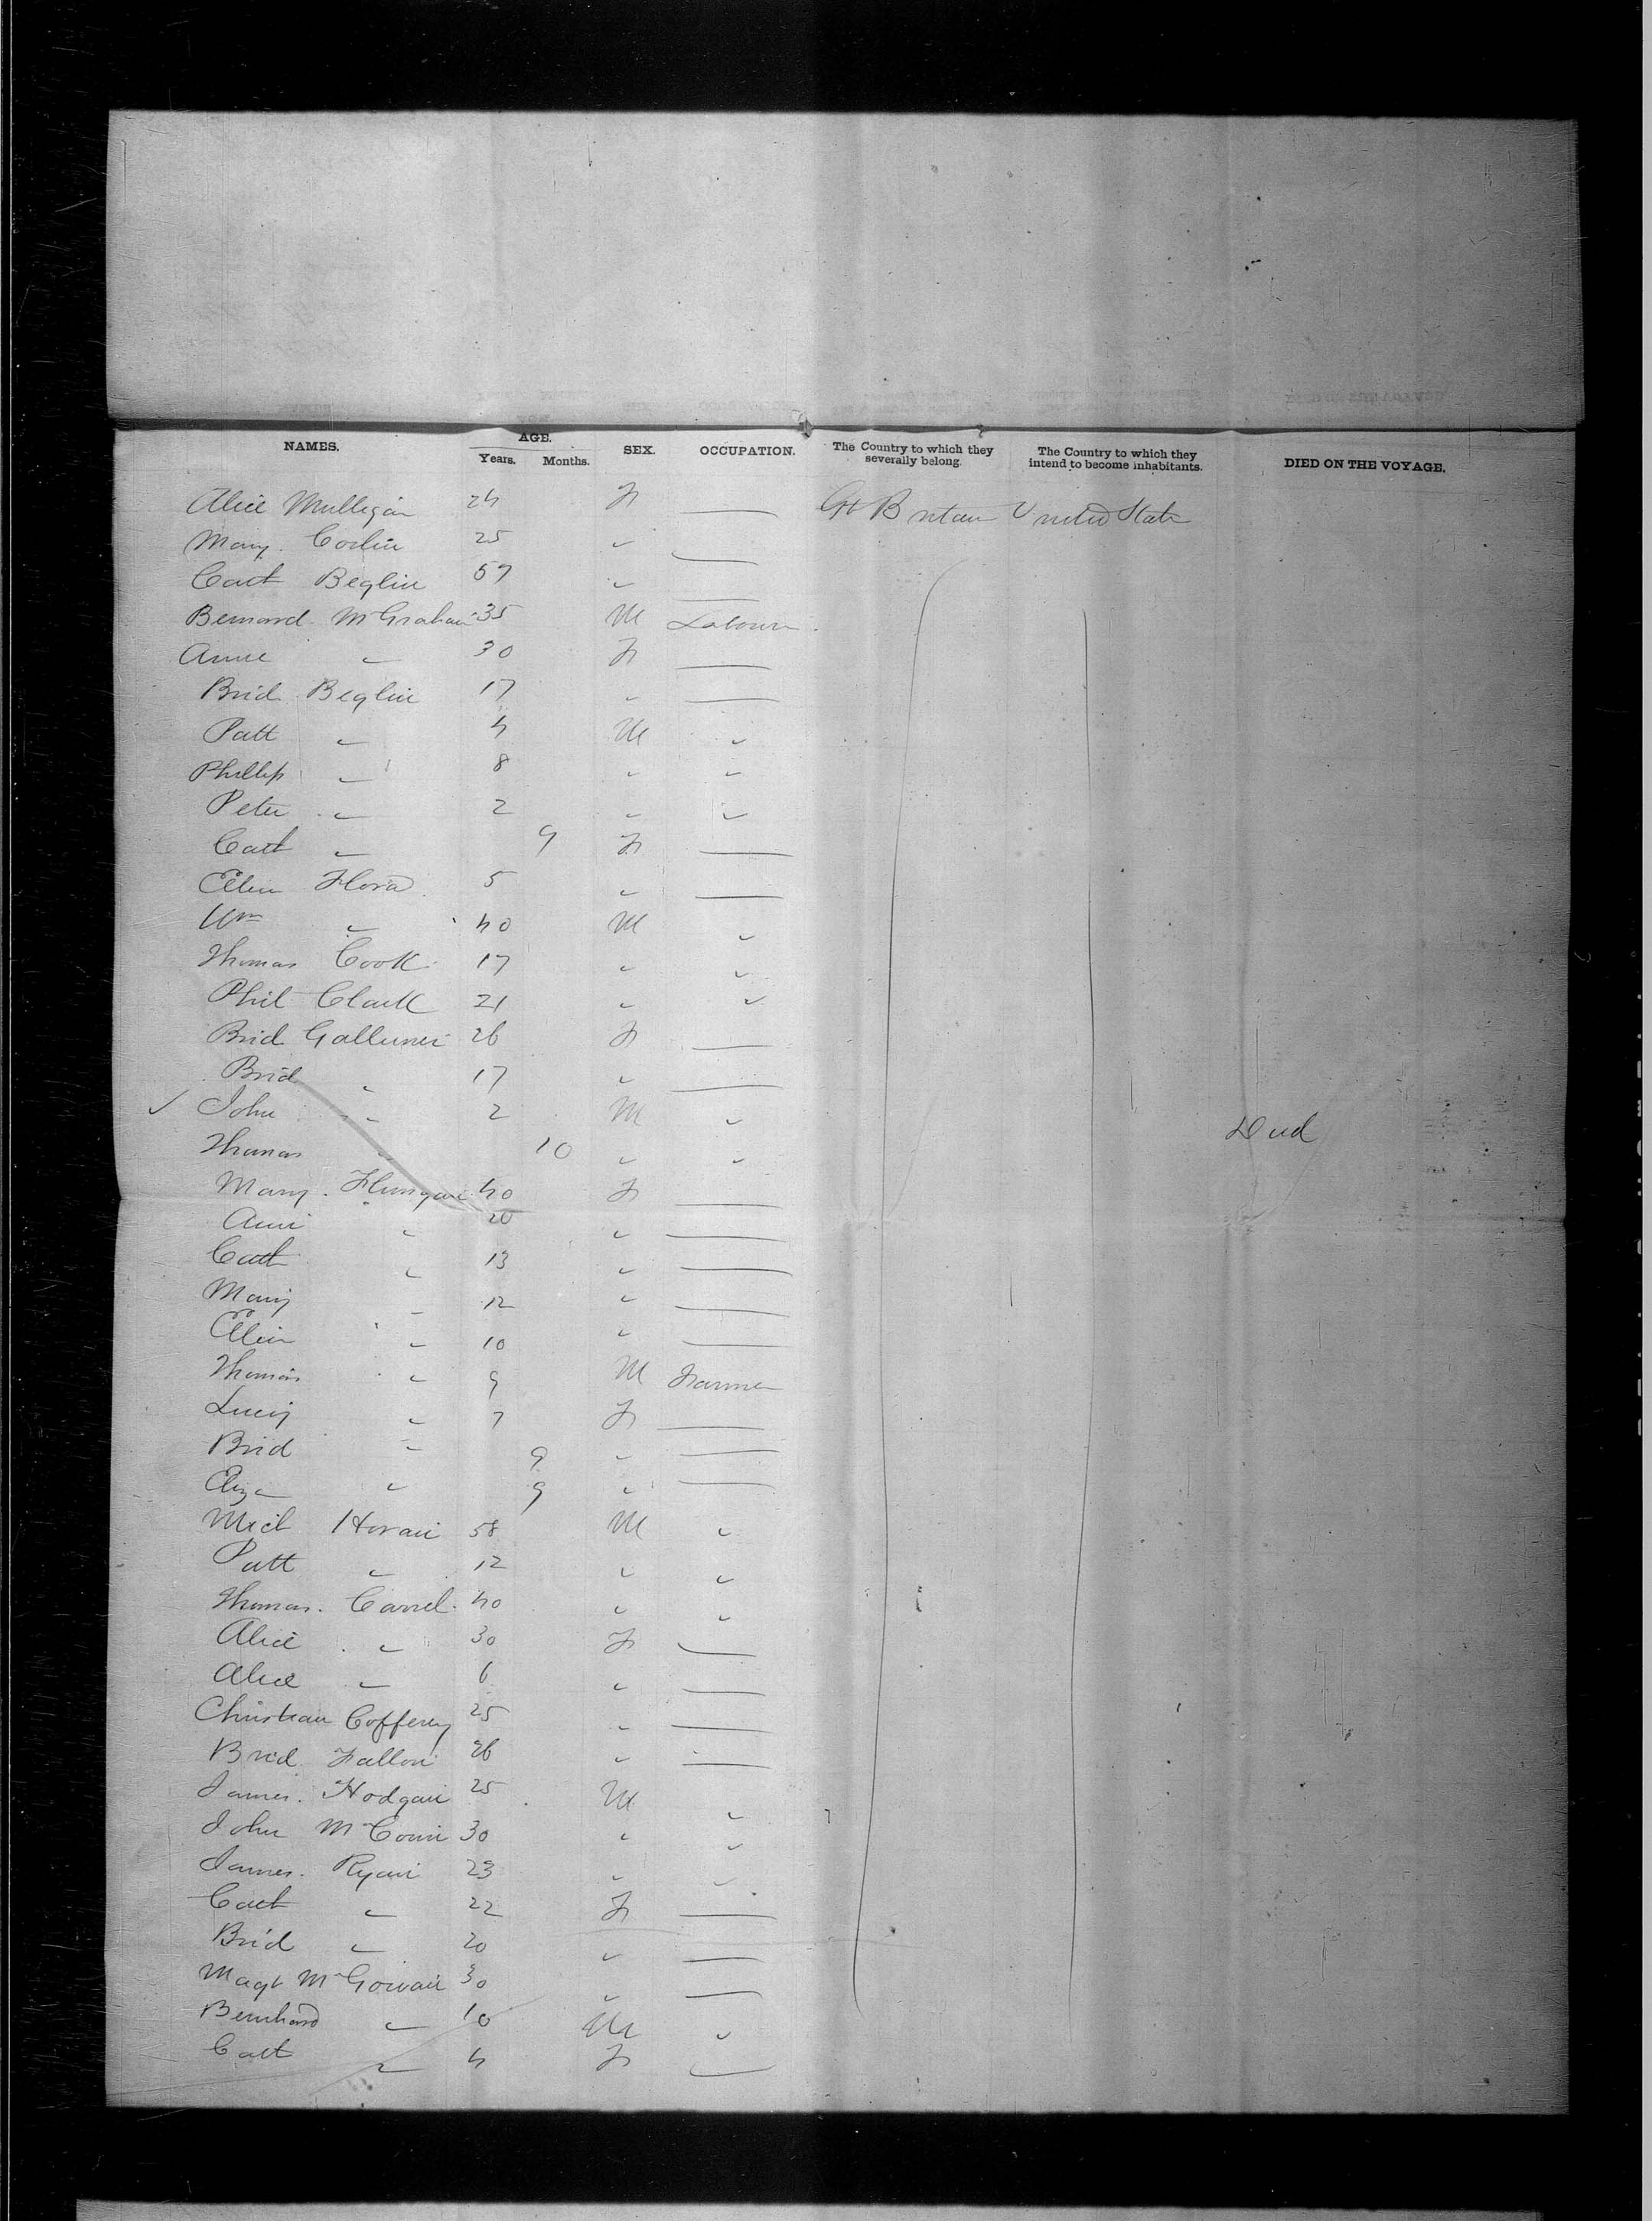 NAMES. AGE. SEX. OCCUPATION. The Country to which they severally belong. The Country to which they intend to become inhabitants. DIED ON THE VOYAGE.
Years. Months.
Alice Mulligan 24 F — Gt Britain United State
Mary Corlin 25 " —
Cath Beglin 57 " —
Bernard McGrahan 35 M Labourer
Anne " 30 F —
Brid Beglin 17 " —
Patt " 4 M "
Phillip " 8 " "
Peter " 2 " "
Cath " 9 F —
Ellen Flood 5 " —
Wm " 40 M "
Thomas Cook 17 " "
Phil Clark 21 " "
Brid 26 F —
Brid " 17 " —
✓ John " 2 M " Died
Thomas " 10 " "
Mary 40 F —
Ann " 20 " —
Cath " 13 " —
Mary " 12 " —
Ellen " 10 " —
Thomas " 9 M Farmer
Lucy " 7 F —
Brid " 9 " —
Eliza " 9 " —
Mich Horan 58 M "
Patt " 12 " "
Thomas Carrel 40 " "
Alice " 30 F —
Alice " 6 " —
Christian Cofferey 25 " —
Brid Fallon 26 " —
James Hodgan 25 M "
John McConn 30 " "
James Ryan 23 " "
Cath " 22 F —
Brid " 20 " —
Magt McGowan 30 " —
Bernhard " 10 M "
Cath " 4 F —